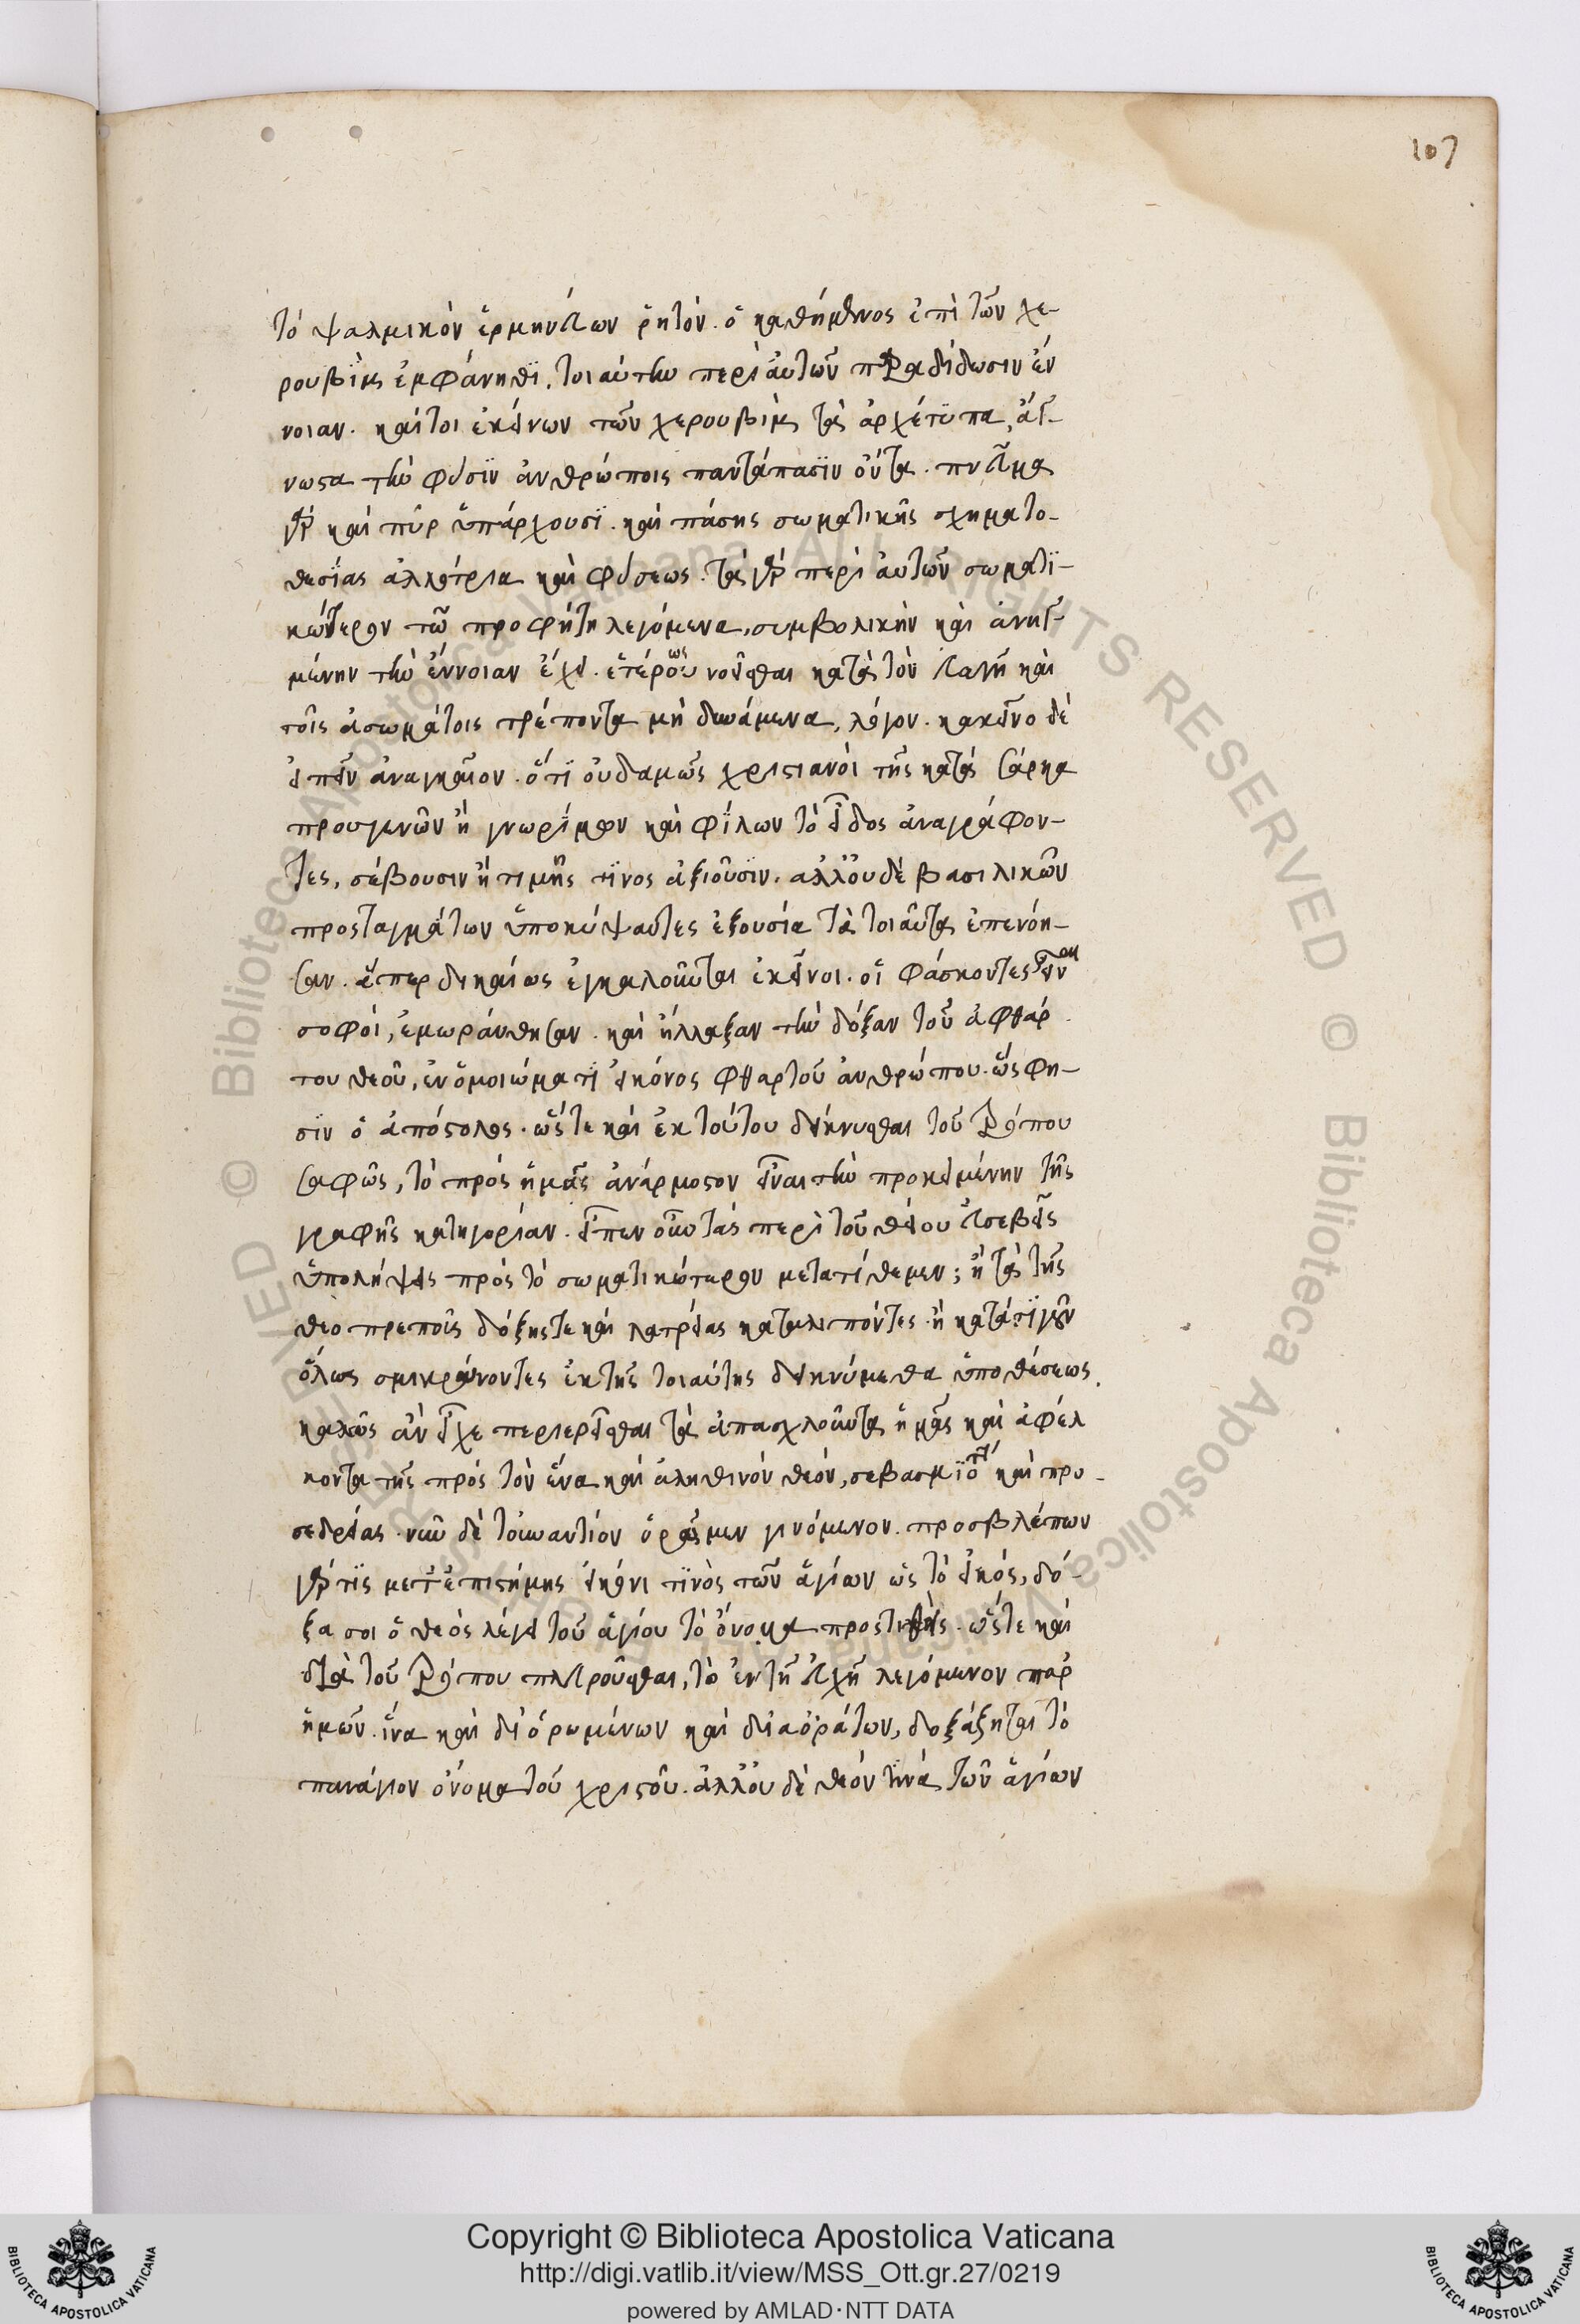 107
τὸ ψαλμικὸν ἑρμηνεύων ῥητόν. ὁ καθήμενος ἐπὶ τῶν χε-
ρουβὶμ ἐμφάνηθι. τοιαύτην περὶ αὐτῶν παραδίδωσιν ἔν
νοιαν. καίτοι ἐκείνων τῶν χερουβὶμ τὰ ἀρχέτυπα, ἄγ-
νωστα τὴν φύσιν ἀνθρώποις παντάπασιν ὄντα. πνεῦμα
γὰρ καὶ πῦρ ὑπάρχουσι. καὶ πάσης σωματικῆς σχηματο-
θεσίας ἀλλότρια καὶ φύσεως. τὰ γὰρ περὶ αὐτῶν σωματι-
κώτερον τῶ προφήτη λεγόμενα, συμβολικὴν καὶ ἀνηγ-
μένην τὴν ἔννοιαν ἔχει. ἑτέρως νοεῖσθαι κατὰ τὸν εὐαγῆ καὶ
τοῖς ἀσωμάτοις τρέποντα μὴ δυνάμενα, λόγον. κακεῖνο δὲ
εἰπεῖν ἀναγκαῖον. ὅτι οὐδαμῶς χριστιανοὶ τῆς κατὰ σάρκα
προσγενῶν ἢ γνωρίμων καὶ φίλων τὸ εἶδος ἀναγράφον-
τες, σέβουσιν ἢ τιμῆς τινος ἀξιοῦσιν. ἀλλ' οὐδὲ βασιλικῶν
προσταγμάτων ὑποκύψαντες ἐξουσία τὰ τοιαῦτα ἐπενόη-
σαν. ἅπερ δικαίως ἐγκαλοῦνται ἐκεῖνοι. οἳ φάσκοντες εἶναι
σοφοὶ, ἐμωράνθησαν. καὶ ἤλλαξαν τὴν δόξαν τοῦ ἀφθάρ
του θεοῦ, ἐν ὁμοιώματι εἰκόνος φθαρτοῦ ἀνθρώπου. ὥς φη-
σιν ὁ ἀπόστολος. ὥστε καὶ ἐκ τούτου δείκνυσθαι τοῦ τρόπου
σαφῶς, τὸ πρὸς ἡμᾶς ἀνάρμοστον εἶναι τὴν προκειμένην τῆς
γραφῆς κατηγορίαν. εἴπερ οὖν τὰς περὶ τοῦ θείου εὐσεβεῖς
ὑπολήψεις πρὸς τὸ σωματικώτερον μετατίθεμεν; ἢ τὰ τῆς
θεοπρεποῦς δόξης τε καὶ λατρείας καταλιπόντες. ἢ κατά τι γοῦν
ὅλως σμικρύνοντες ἐκ τῆς τοιαύτης δεικνύμεθα ὑποθέσεως.
καλῶς ἂν εἶχε περιερεῖσθαι τὰ ἀπασχλοῦντα ἡμᾶς καὶ ἀφέλ
κοντα τῆς πρὸς τὸν ἕνα καὶ ἀληθινὸν θεὸν, σεβασμιότητος καὶ προ-
σεδρείας. νῦν δὲ τοὐναντίον ὁρῶμεν γινόμενον. προσβλέπων
γάρ τις μετ' ἐπιστήμης εἰκόνι τινὸς τῶν ἁγίων ὡς τὸ εἰκός, δό-
ξα σοι ὁ θεὸς λέγει τοῦ ἁγίου τὸ ὄνομα προστιθείς. ὥστε καὶ
διὰ τοῦ τρόπου πληροῦσθαι, τὸ ἐν τῆ εὐχῆ λεγόμενον παρ'
ἡμῶν. ἵνα καὶ δι' ὁρωμένων καὶ δι' ἀοράτων, δοξάζηται τὸ
πανάγιον ὄνομα τοῦ χριστοῦ. ἀλλ' οὐ δὲ θεόν τινὰ τῶν ἁγίων
© Biblioteca Apostolica Vaticana ALL RIGHTS RESERVED
Copyright © Biblioteca Apostolica Vaticana
http://digi.vatlib.it/view/MSS_Ott.gr.27/0219
powered by AMLAD·NTT DATA
BIBLIOTECA APOSTOLICA VATICANA
BIBLIOTECA APOSTOLICA VATICANA